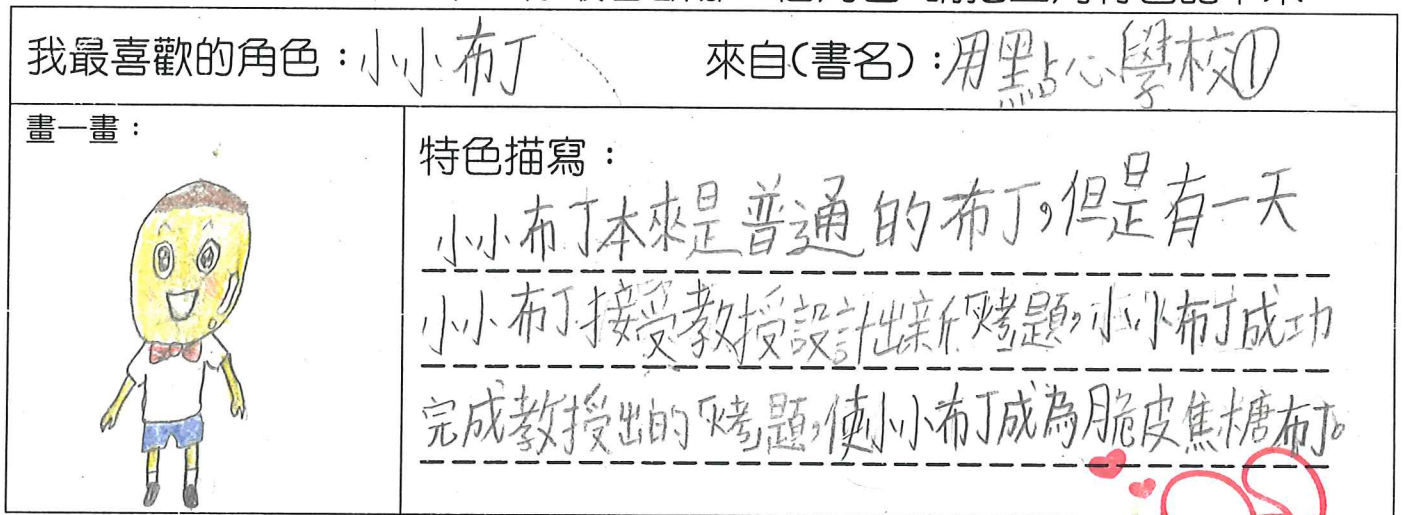 我最喜歡的角色：小小布丁 來自(書名)：用點心學校①
畫一畫：
特色描寫：
小小布丁本來是普通的布丁，但是有一天
小小布丁接受教授設計出新「烤題，小小布丁成功
完成教授出的「烤題，使小小布丁成為脆皮焦糖布丁。